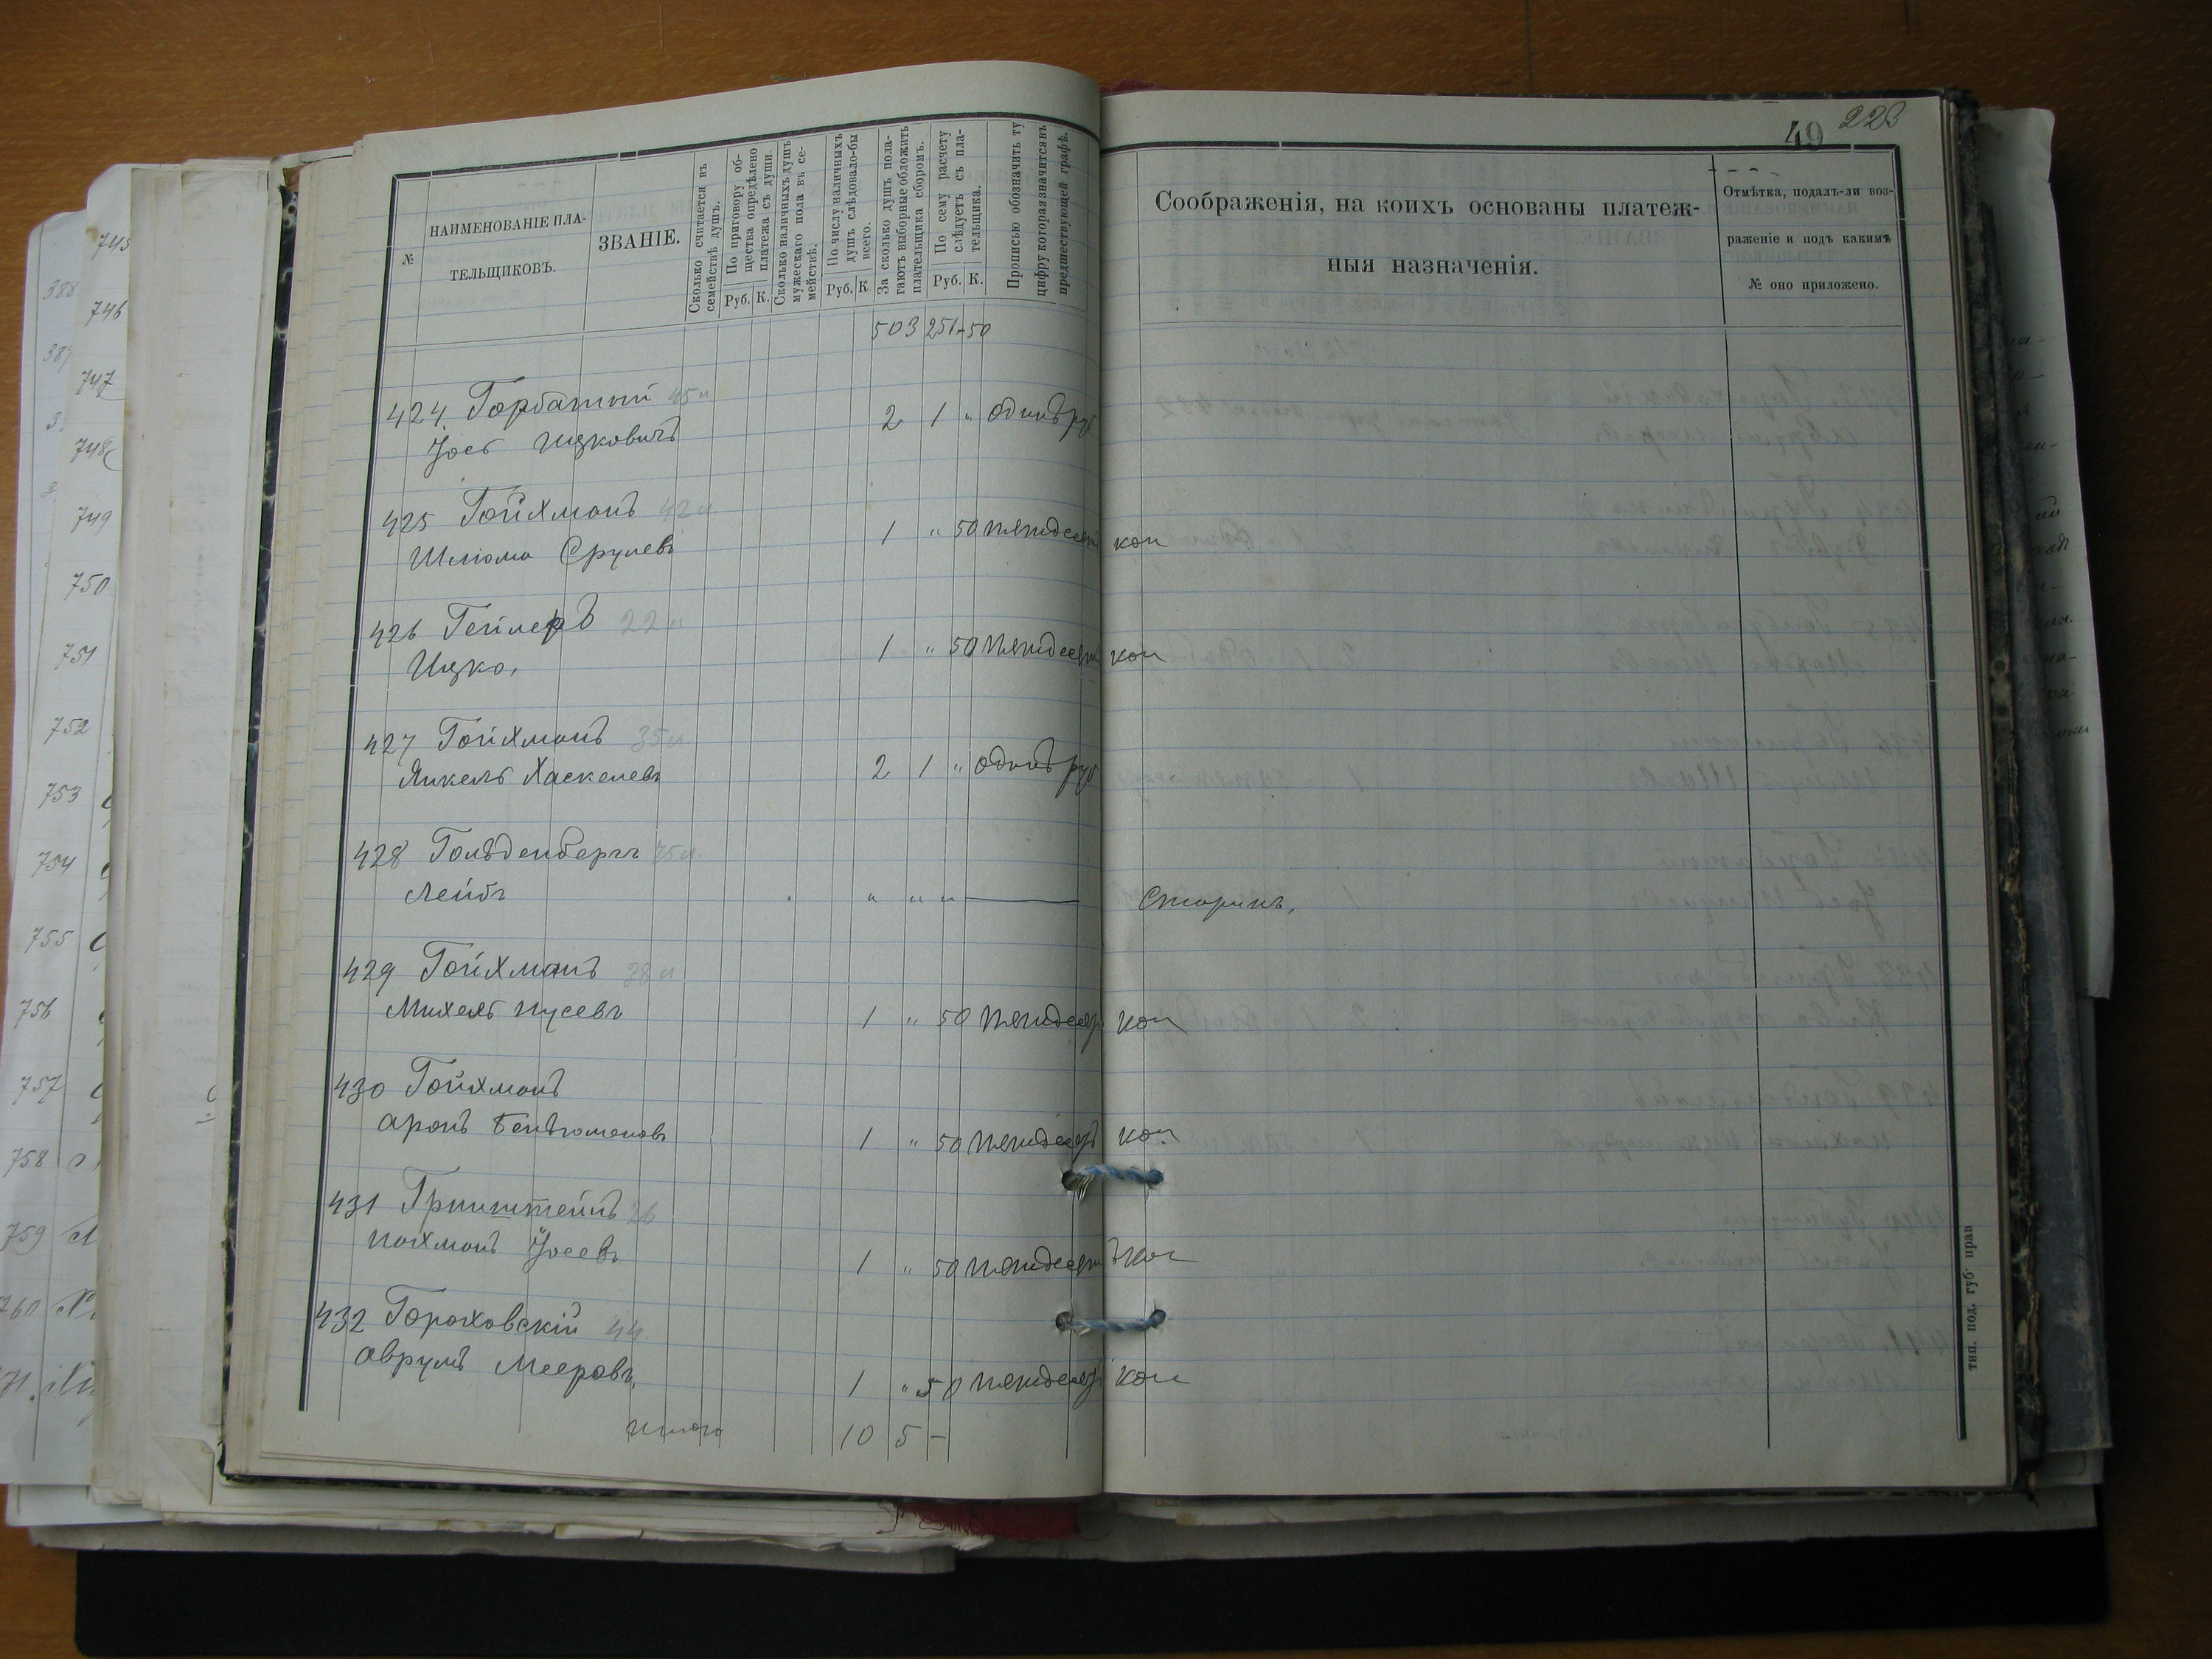 49 223
№
НАИМЕНОВАНІЕ ПЛА-
ТЕЛЬЩИКОВЪ.
ЗВАНІЕ.
Сколько считается въ
семействѣ душъ.
По приговору об-
щества опредѣлено
платежа съ души.
Руб. К.
Сколько наличныхъ душъ
мужескаго пола въ се-
мействѣ.
По числу наличныхъ
душъ слѣдовало-бы
всего.
Руб. К.
За сколько душъ пола-
гаютъ выборные обложить
плательщика сборомъ.
По сему расчету
слѣдуетъ съ пла-
тельщика.
Руб. К.
Прописью обозначить ту
цифру которая значится въ
предшествующей графѣ.
Соображенія, на коихъ основаны платеж-
ныя назначенія.
Отмѣтка, подалъ-ли воз-
раженіе и подъ какимъ
№ оно приложено.
503 251-50
424 Горбатый 45 л
Іось Ицковичъ 2 1 " одинъ руб
425 Гойхманъ 42 л
Шлiома Срулевъ 1 " 50 пятдесят коп
426 Гейлеръ 22 л
Ицко, 1 " 50 пятдесят коп
427 Гойхманъ 35 л
Янкель Хаскелевъ 2 1 " одинъ руб
428 Гольденбергъ 75 л
Лейбъ " " " Старикъ,
429 Гойхманъ 28 л
Михель Нусевъ 1 " 50 пятдесят коп
430 Гойхманъ
Аронъ Беньюменовъ 1 " 50 пятдесят коп
431 Гринштейнъ 26
Нахманъ Іосевъ 1 " 50 пятдесятъ коп
432 Гороховскій 44
Аврумъ Мееровъ, 1 " 50 пятдесят коп
Итого 10 5 -
тип. под. губ. прав
745
746
747
748
749
750
751
752
753
754
755
756
757
758
759
760